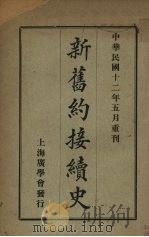 中華民國十二年五月重刊
新舊約接續史
上海廣學會發行